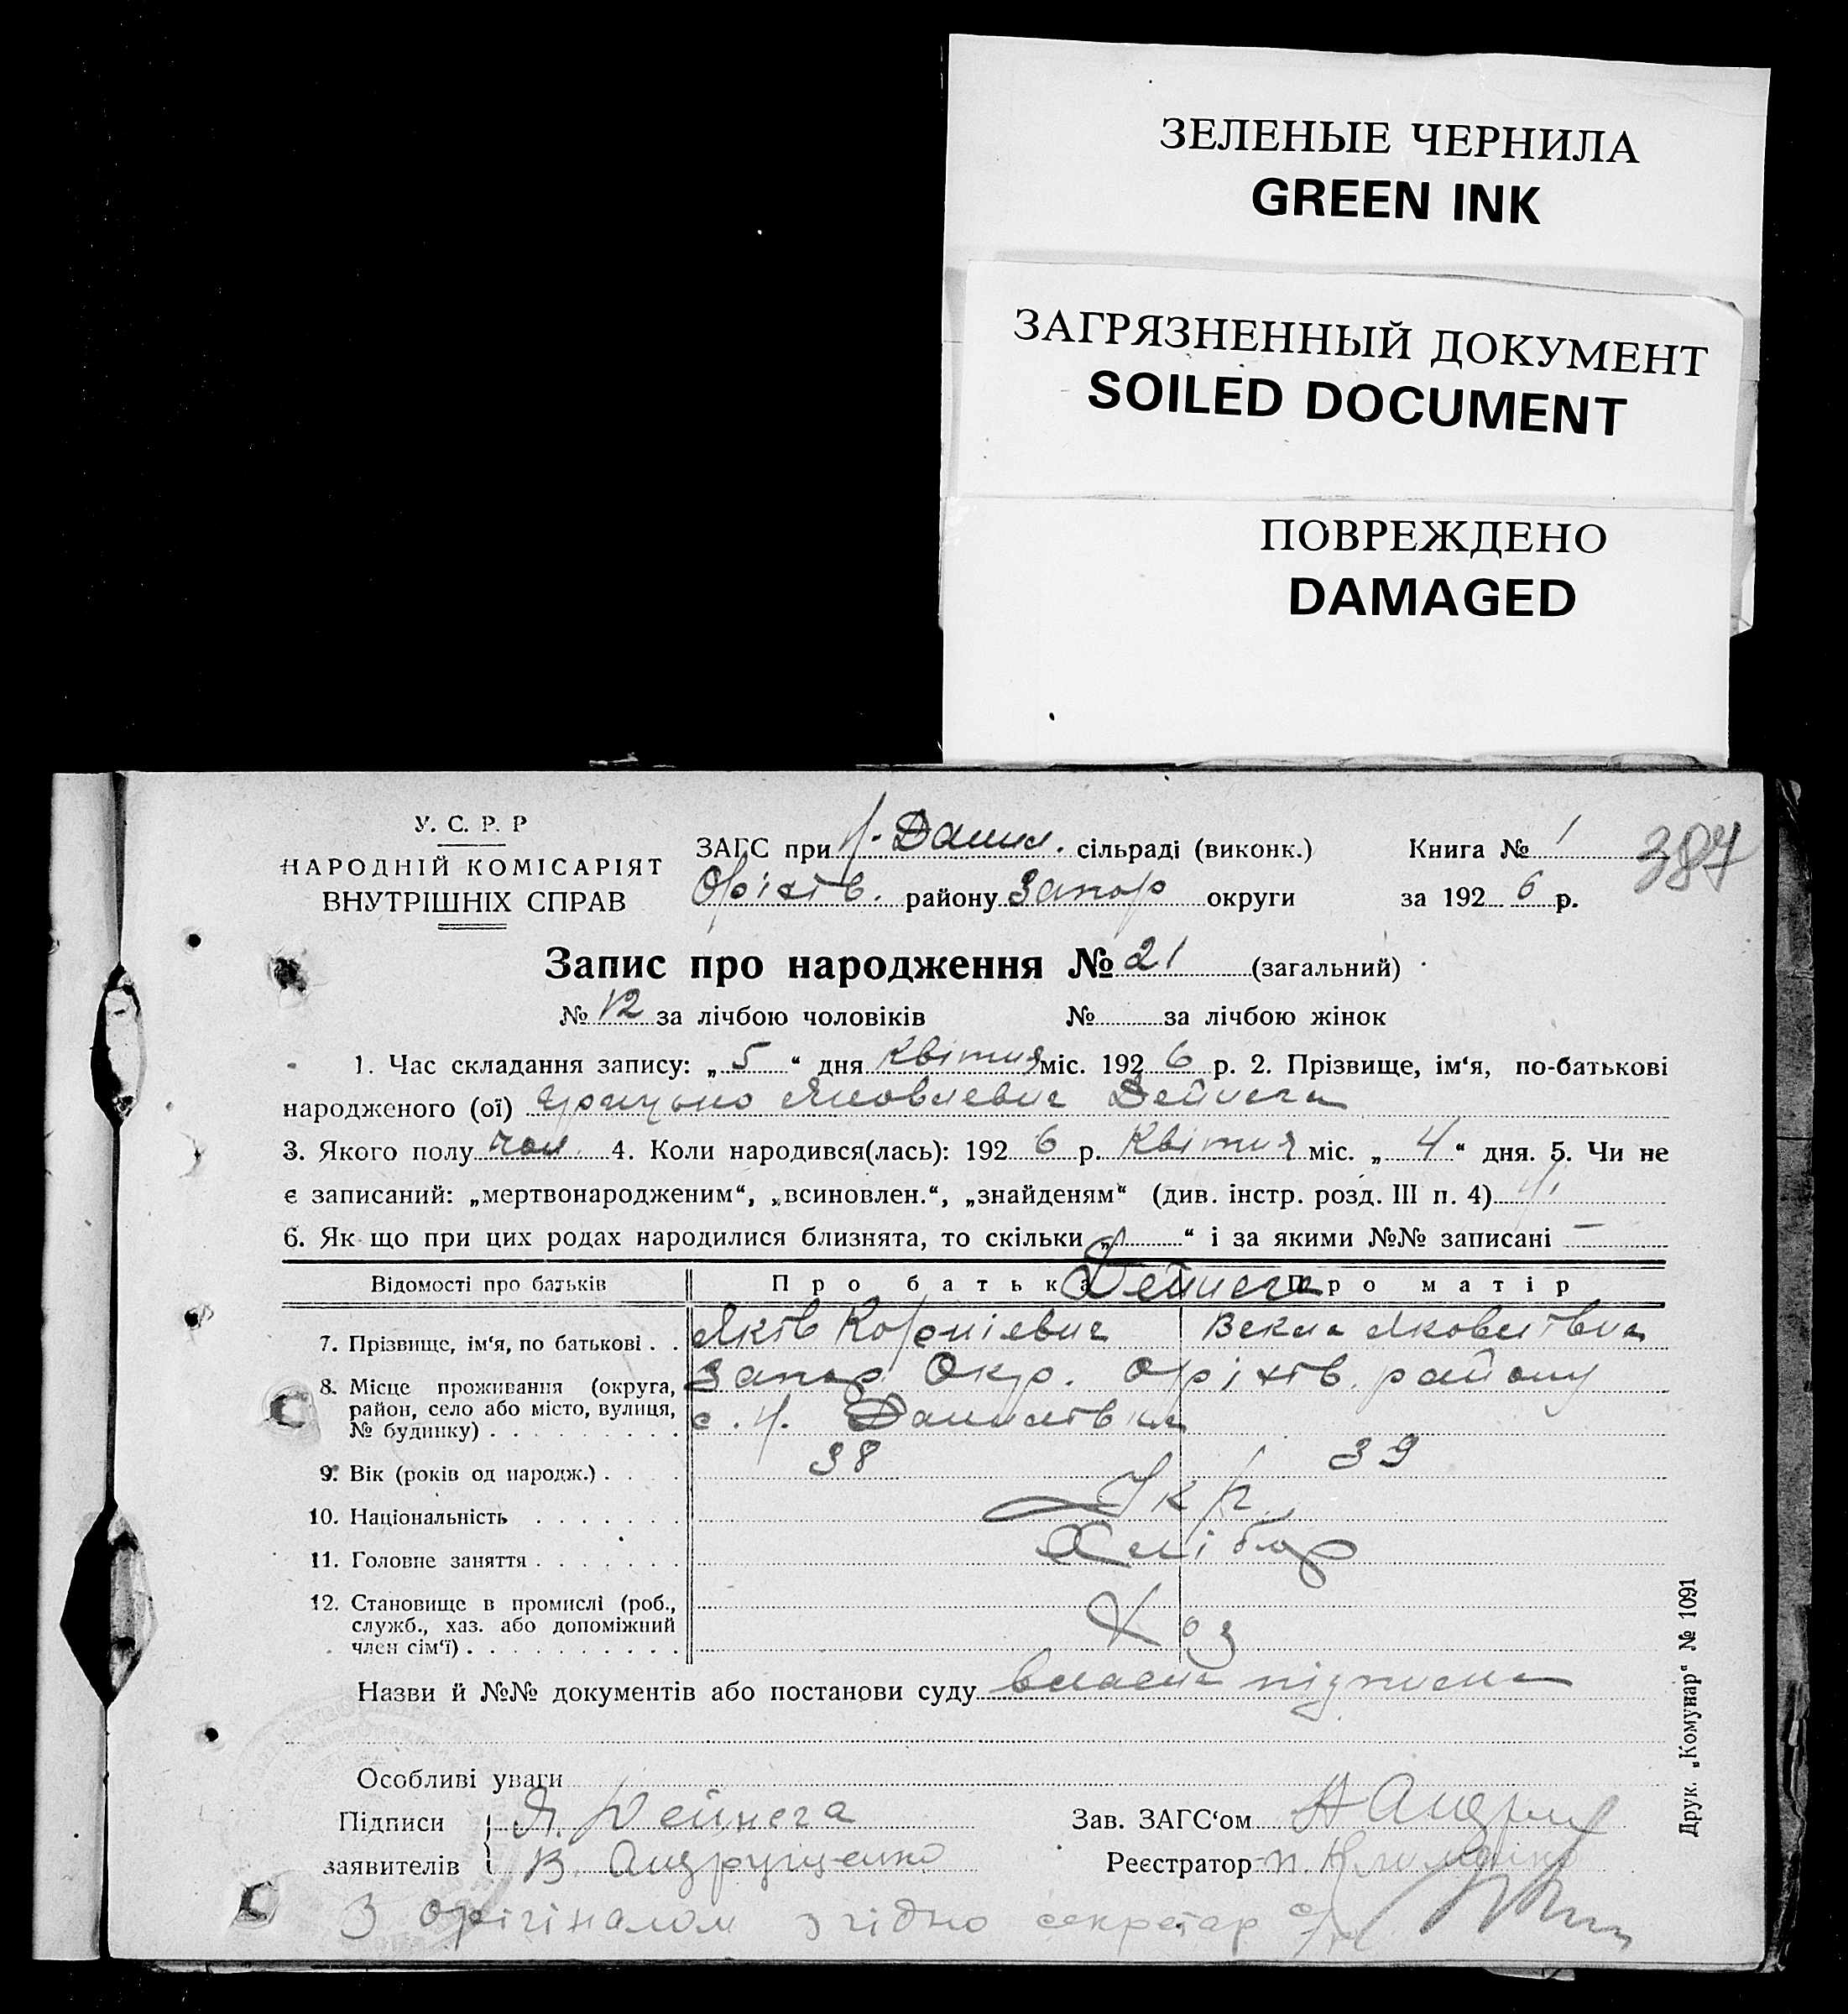 ЗЕЛЕНЫЕ ЧЕРНИЛА
GREEN INK
ЗАГРЯЗНЕННЫЙ ДОКУМЕНТ
SOILED DOCUMENT
ПОВРЕЖДЕНО
DAMAGED
У. С. Р. Р
НАРОДНІЙ КОМІСАРІЯТ
ВНУТРІШНІХ СПРАВ
ЗАГС при Н. Данил. сільраді (виконк.)
Оріхів. району Запор округи
Книга № 1
за 1926 р.
387
Запис про народження № 21 (загальний)
№ 12 за лічбою чоловіків № за лічбою жінок
1. Час складання запису: „5“ дня Квітня міс. 1926 р. 2. Прізвище, ім‘я, по-батькові
народженого (ої) Яковлевич Дейнега
3. Якого полу чол. 4. Коли народився(лась): 1926 р. Квітня міс. „4“ дня. 5. Чи не
є записаний: „мертвонародженим“, „всиновлен.“, „знайденям“ (див. інстр. розд. III п. 4) Ні
6. Як що при цих родах народилися близнята, то скільки „ “ і за якими №№ записані —
Відомості про батьків Про батька Про матір
Дейнега
7. Прізвище, ім‘я, по батькові . . Яків Корнієвич Векла Яковлівна
8. Місце проживання (округа, район, село або місто, вулиця, № будинку) . . . . . . . . . Запор Окр. Оріхів. району
с. Н. Данилівка
9. Вік (років од народж.) . . . . 38 39
10. Національність . . . . . . . Укр.
11. Головне заняття . . . . . . . Хлібор
12. Становище в промислі (роб., служб., хаз. або допоміжний член сім‘ї) . . . . . . . . . . Хоз
Назви й №№ документів або постанови суду власна підписка
Особливі уваги
Підписи заявителів
Я. Дейнега
В. Андрущенко
Зав. ЗАГС‘ом
Реєстратор
З орігіналом згідно секретар с/р
Друк. „Комунар“ № 1091